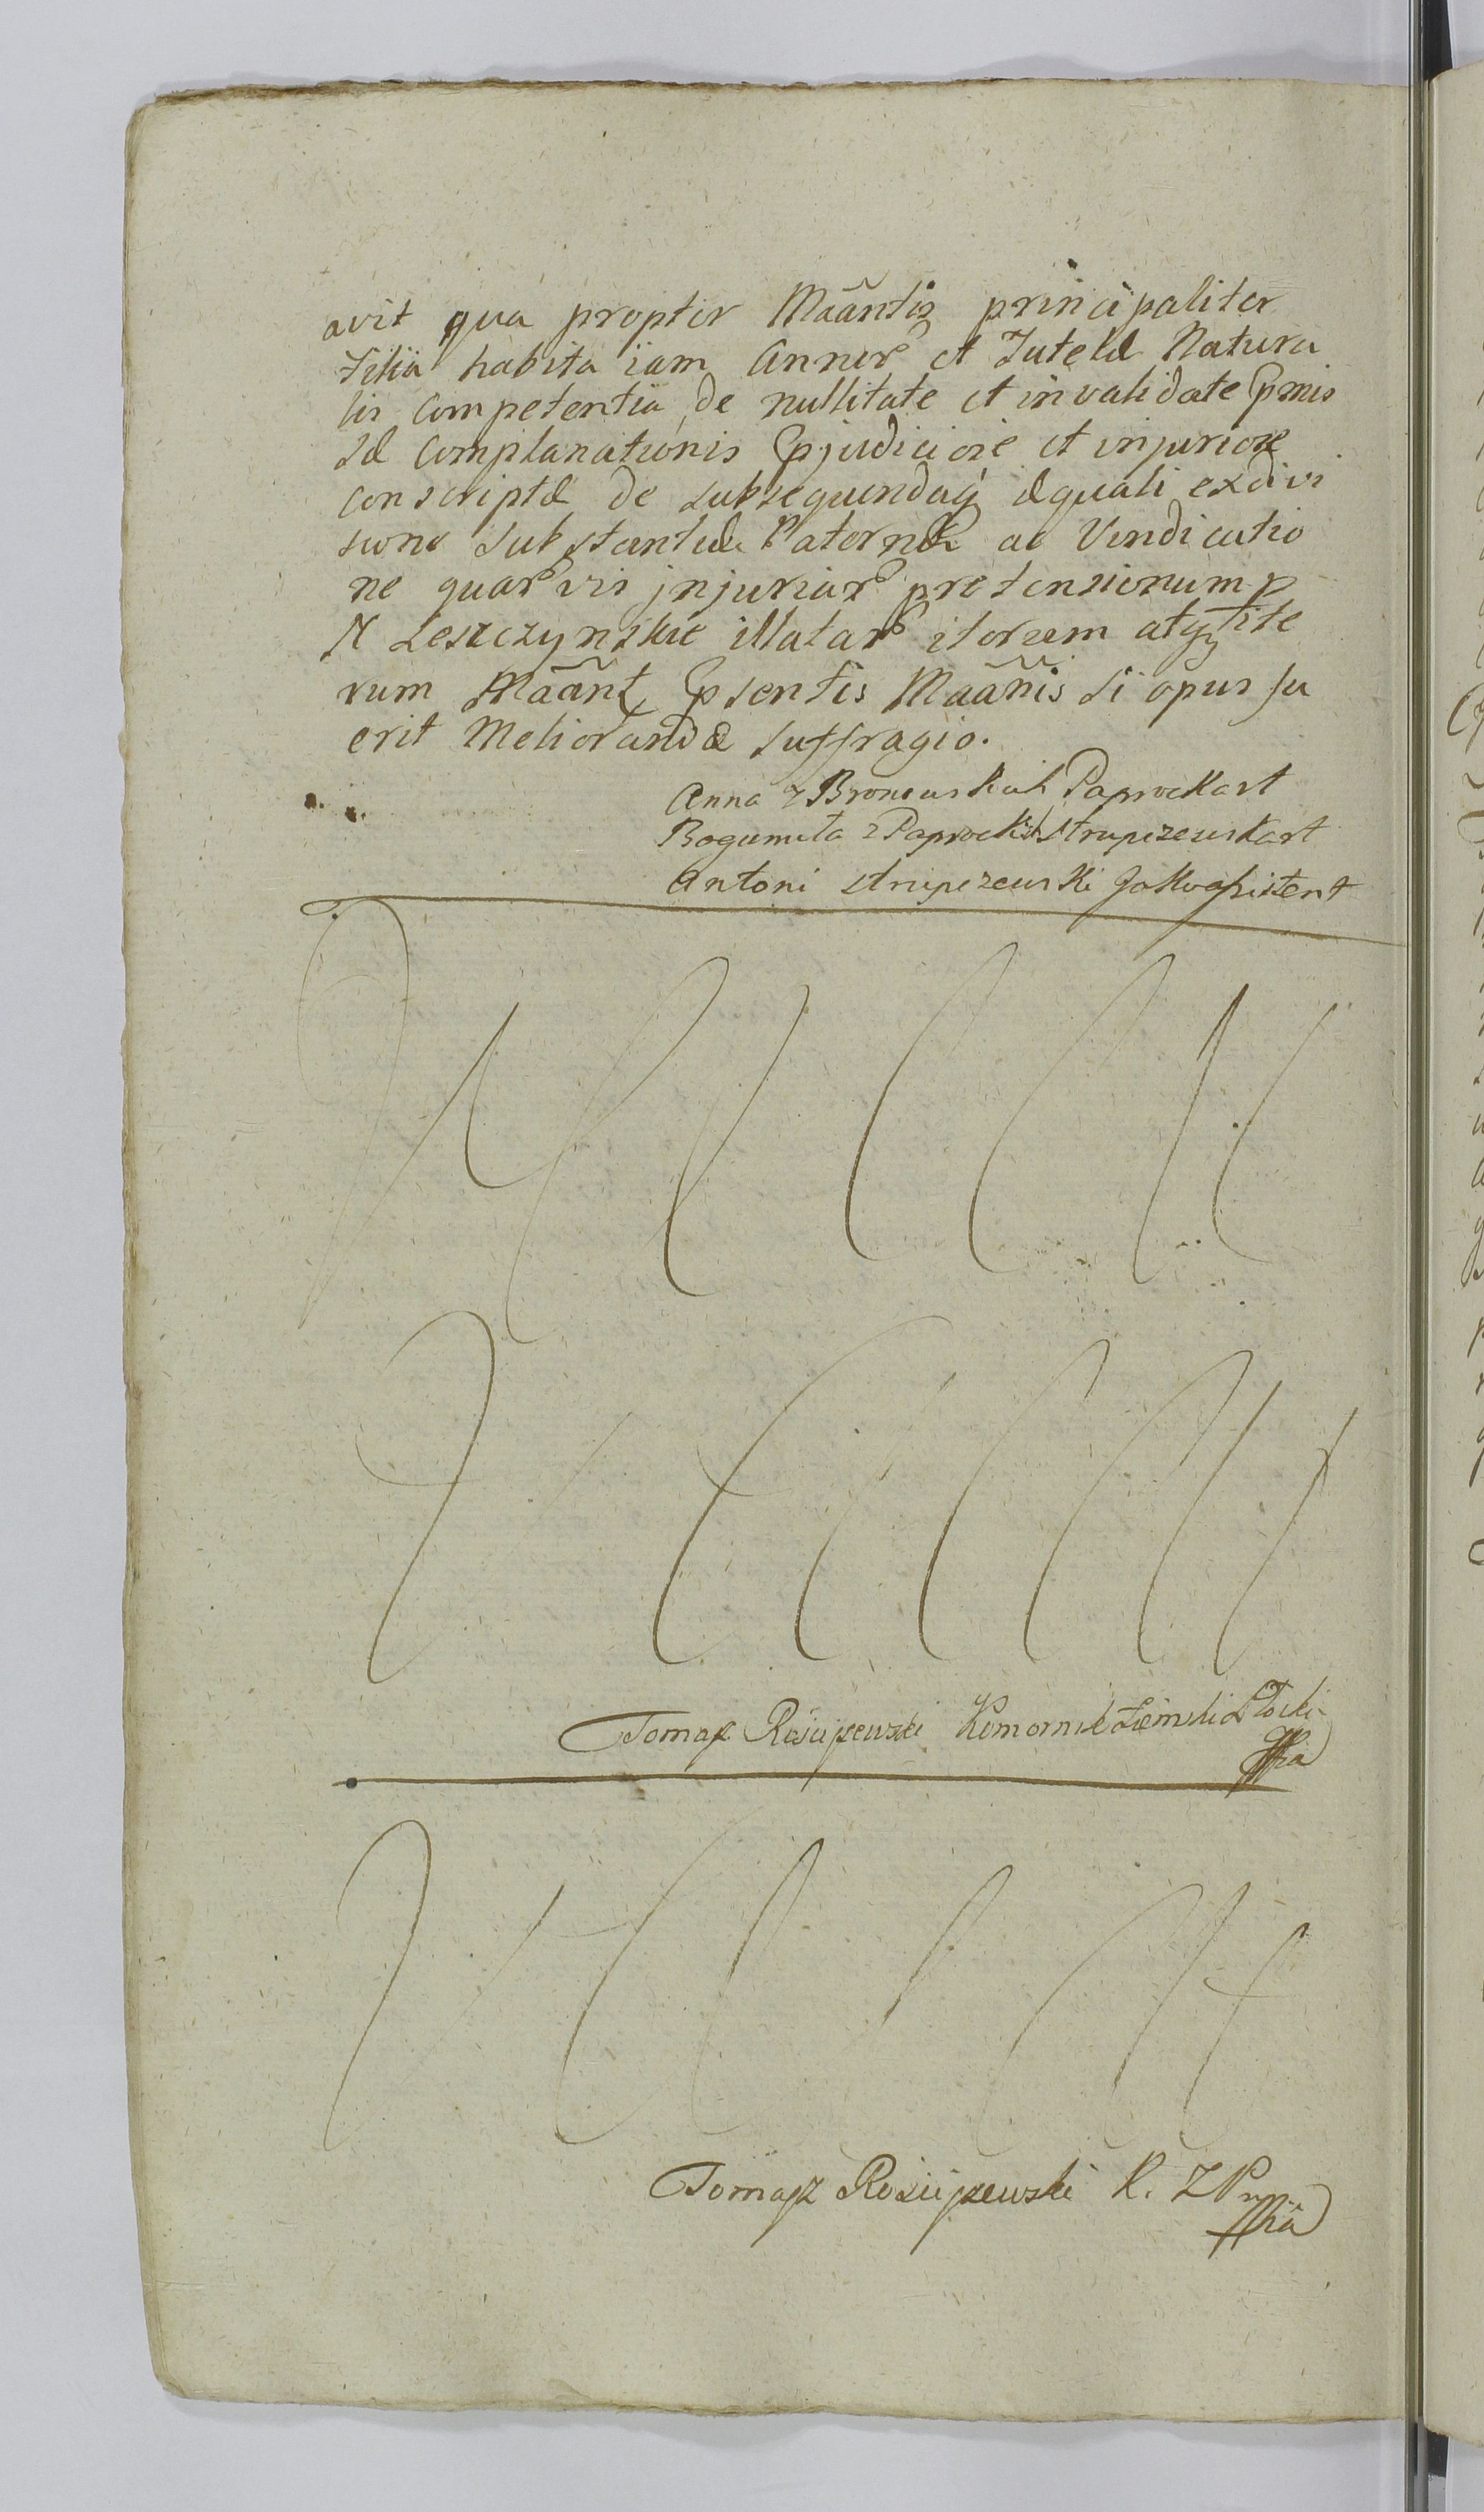 avit qua propter Maãntis principaliter
filia habita iam Annor et Tutelæ Natura
lis Competentia, de nullitate et invalidate Pmis
sæ Complanationis Pjudiciose et injuriose
conscriptæ de subsequendaq æquali exdivi
sione Substantiæ Paternæ ac Vendicatio
ne quarvis injuriar pretensionum p
N Leszczynskie illatar itorzem atq ite
rum Maãnt Psentis Maãnis si opus fu
erit Meliorandæ suffragio.
Anna z Broniewskich Paprocka st
Bogumiła z Paprockich Strupczewska st
Antoni Strupczewski Jako assistent
Tomasz Rościszewski Komornik Ziemski Płocki
mpia
Tomasz Rościszewski K. Z P mpia